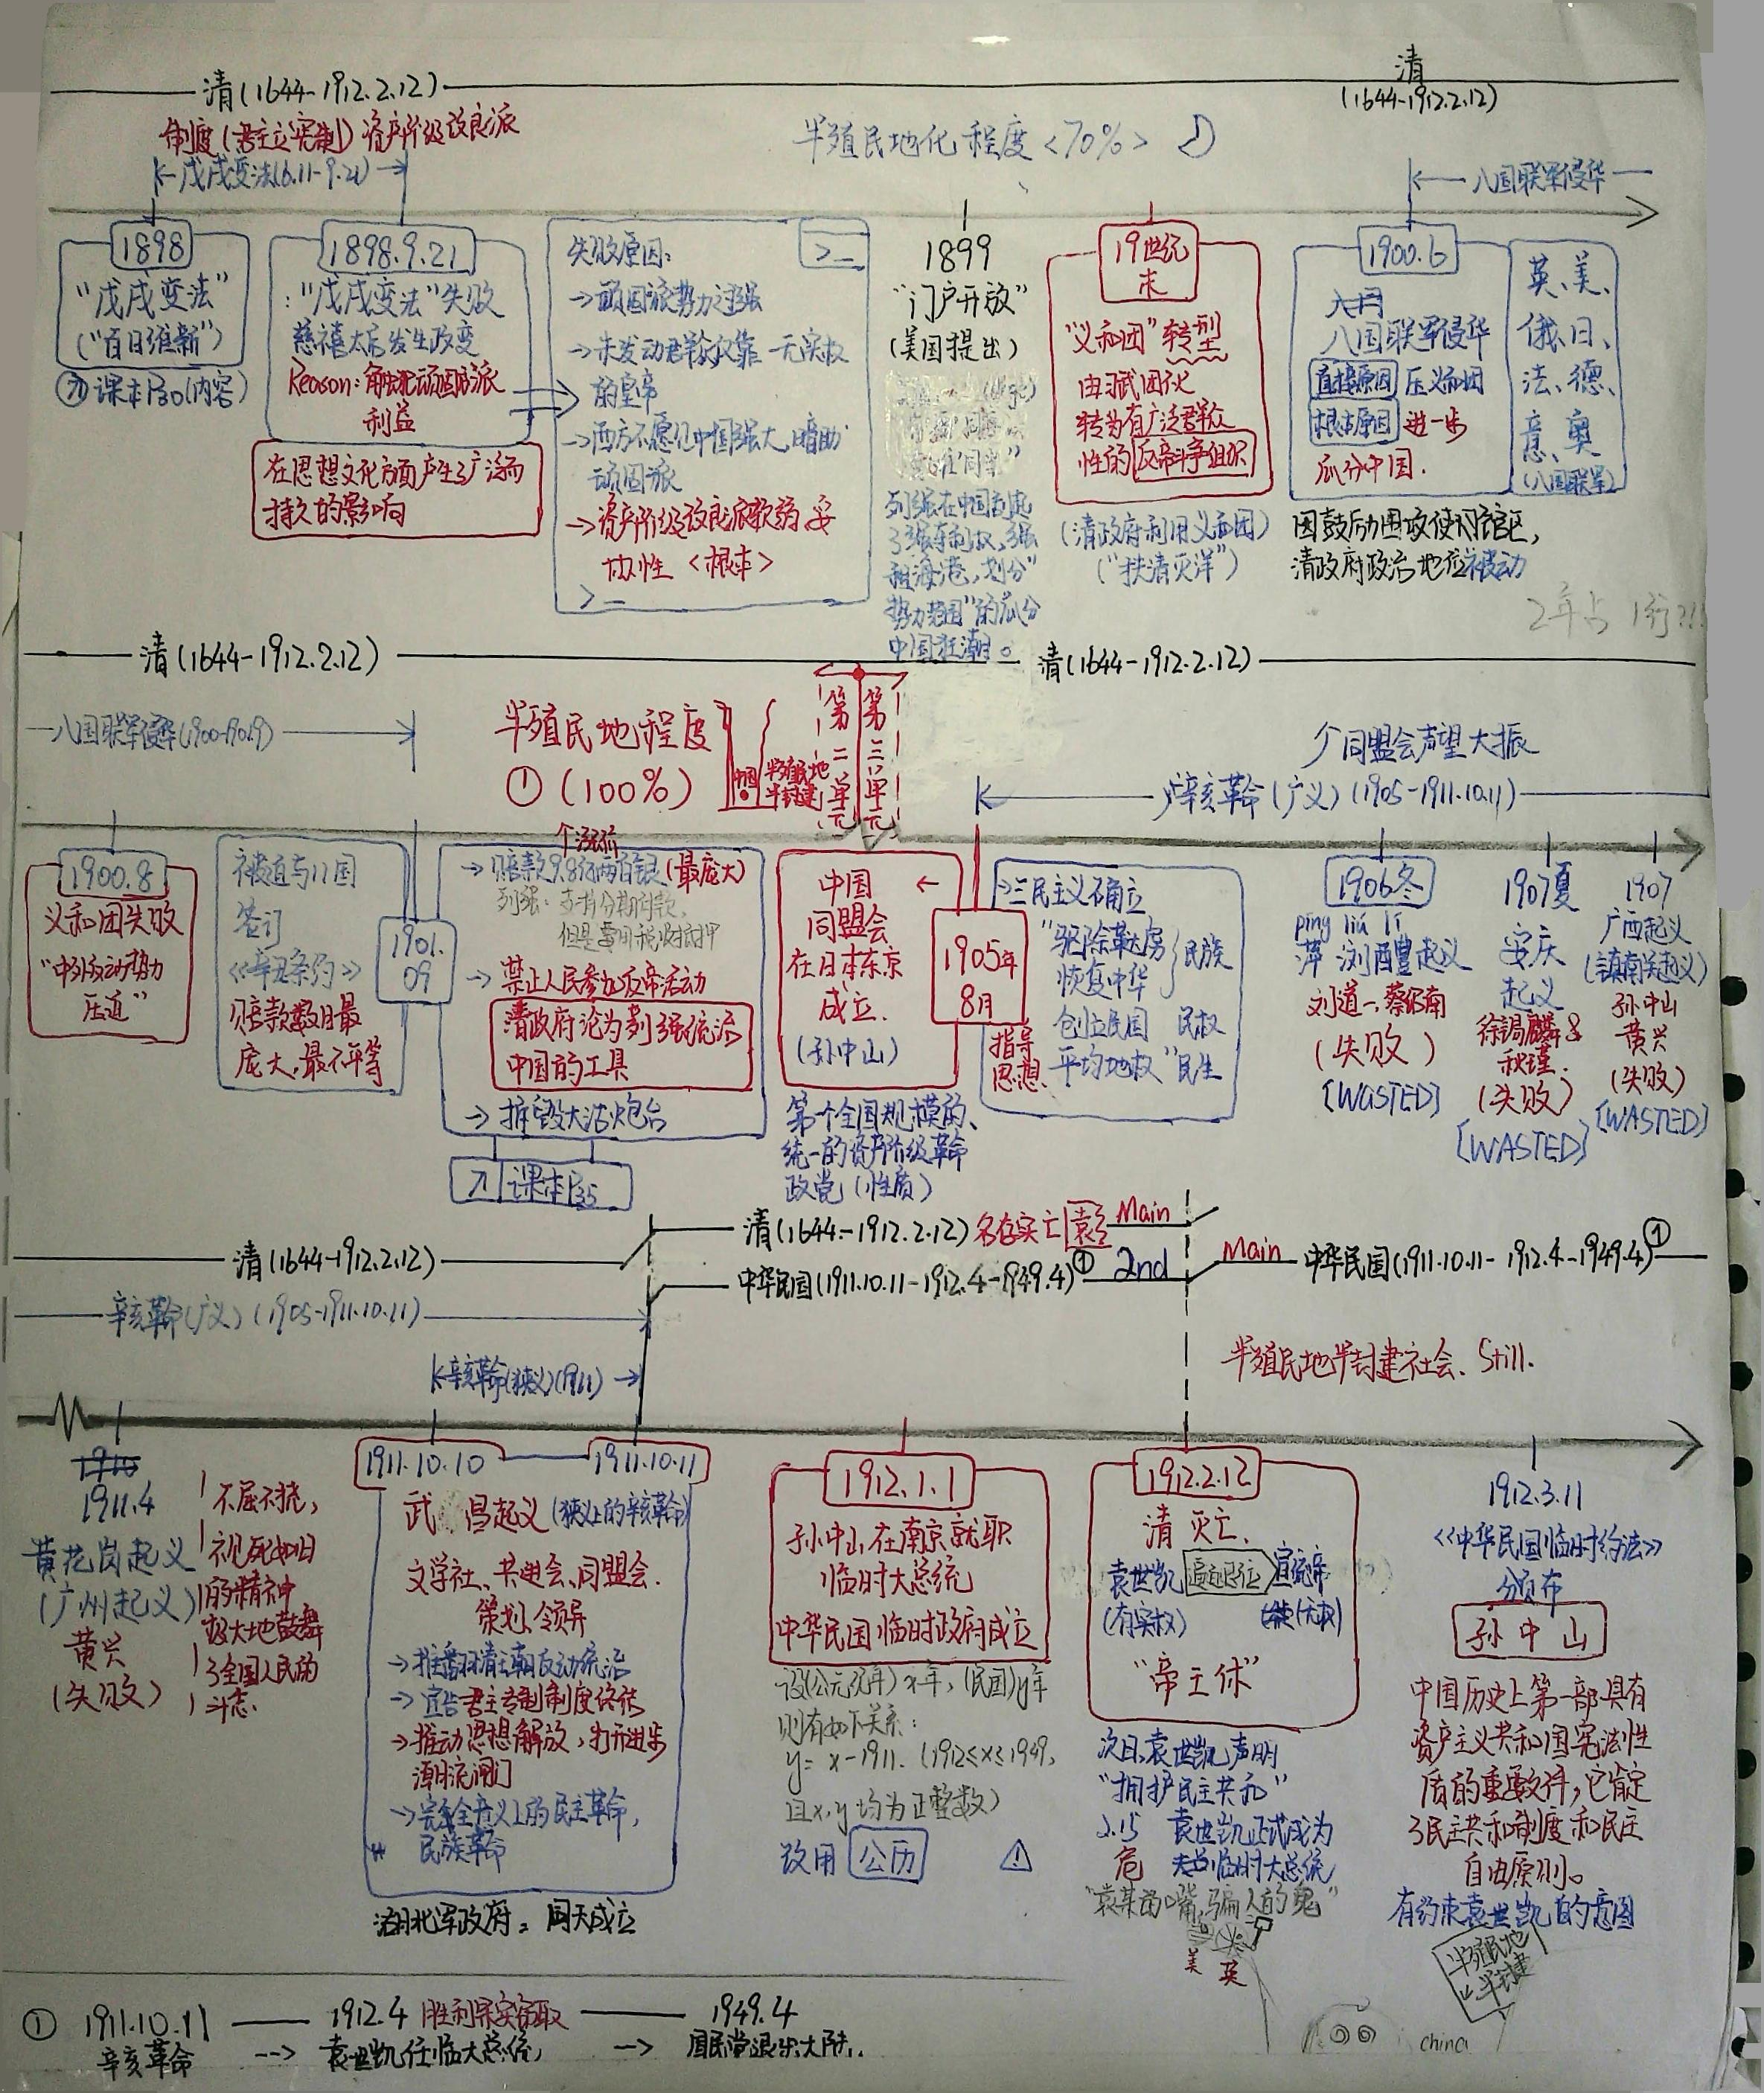 清(1644-1912.2.12)
清
(1644-1912.2.12)
制度(君主立宪制) 资产阶级改良派
戊戌变法(6.11-9.21)
半殖民地化程度<70%>
八国联军侵华
1898
"戊戌变法"
("百日维新")
课本P30(内容)
1898.9.21
:"戊戌变法"失败
慈禧太后发生政变
Reason:触犯顽固派
利益
在思想文化方面产生了广泛而
持久的影响
失败原因:
>_
→顽固派势力过强
→未发动群众仅靠一无实权
的皇帝
→西方不愿让中国强大,暗助
顽固派
→资产阶级改良派软弱妥
协性<根本>
>_
1899
"门户开放"
(美国提出)
列强在中国掀起
了强夺利权、强
租海港,划分"
势力范围"的瓜分
中国狂潮。
19世纪
末
"义和团"转型
由武团伙
转为有广泛群众
性的反帝斗争组织
(清政府利用义和团)
("扶清灭洋")
1900.6
八国联军侵华
直接原因 压义和团
根本原因 进一步
瓜分中国.
英、美、
俄、日、
法、德、
意、奥
(八国联军)
因鼓励围攻使馆区,
清政府政治地位被动
2年占1行?!!
清(1644-1912.2.12)
清(1644-1912.2.12)
八国联军侵华(1900-1901.9)
半殖民地程度
①(100%)
中国
半殖民地
半封建
第二单元
第三单元
同盟会声望大振
辛亥革命(广义)(1905-1911.10.11)
1900.8
义和团失败
"中外反动势力
压迫"
被迫与11国
签订
《辛丑条约》
赔款数目最
庞大,最不平等
1901.
09
→赔款9.8亿两白银(最庞大)
列强:支持分期付款,
但是要用税收抵押
→禁止人民参加反帝活动
清政府沦为列强统治
中国的工具
→摧毁大沽炮台
课本P35
中国
同盟会
在日本东京
成立.
(孙中山)
1905年
8月
第一个全国规模的、
统一的资产阶级革命
政党(性质)
→三民主义确立
"驱除鞑虏
恢复中华 民族
创立民国 民权
平均地权" 民生
指导
思想
1906冬
píng liú lǐ
萍浏醴起义
刘道一、蔡绍南
(失败)
[WASTED]
1907夏
安庆
起义
徐锡麟&
秋瑾.
(失败)
[WASTED]
1907
广西起义
(镇南关起义)
孙中山
黄兴
(失败)
[WASTED]
清(1644-1912.2.12)
清(1644-1912.2.12)名存实亡 Main
中华民国(1911.10.11-1912.4-1949.4)① 2nd
Main 中华民国(1911.10.11-1912.4-1949.4)①
辛亥革命(广义)(1905-1911.10.11)
辛亥革命(狭义)(1911)
半殖民地半封建社会、Still.
1911.4
黄花岗起义
(广州起义)
黄兴
(失败)
不屈不挠,
视死如归
的精神
极大地鼓舞
了全国人民的
斗志.
1911.10.10
1911.10.11
武昌起义(狭义上的辛亥革命)
文学社、共进会、同盟会.
策划、领导
→推翻清王朝反动统治
→宣告君主专制制度终结
→推动思想解放,打开进步
潮流闸门
→完全意义上的民主革命,
民族革命
湖北军政府:同天成立
1912.1.1
孙中山在南京就职
临时大总统
中华民国临时政府成立
设(公元纪年)x年,(民国)y年
则有如下关系:
y=x-1911.(1912≤x≤1949,
且x,y均为正整数)
改用公历
1912.2.12
清 灭亡.
袁世凯 逼迫退位 宣统帝
(有实权) (无权)
"帝王休"
次日,袁世凯声明
"拥护民主共和"
2.15 袁世凯正式成为
临时大总统
危
"袁某的嘴,骗人的鬼"
美 英
1912.3.11
《中华民国临时约法》
颁布
孙中山
中国历史上第一部具有
资产主义共和国宪法性
质的重要文件,它肯定
了民主共和制度和民主
自由原则。
有约束袁世凯的意图
半殖民地
半封建
china
① 1911.10.11 —— 1912.4 胜利果实窃取 —— 1949.4
辛亥革命 --> 袁世凯任临大总统, → 国民党退出大陆..